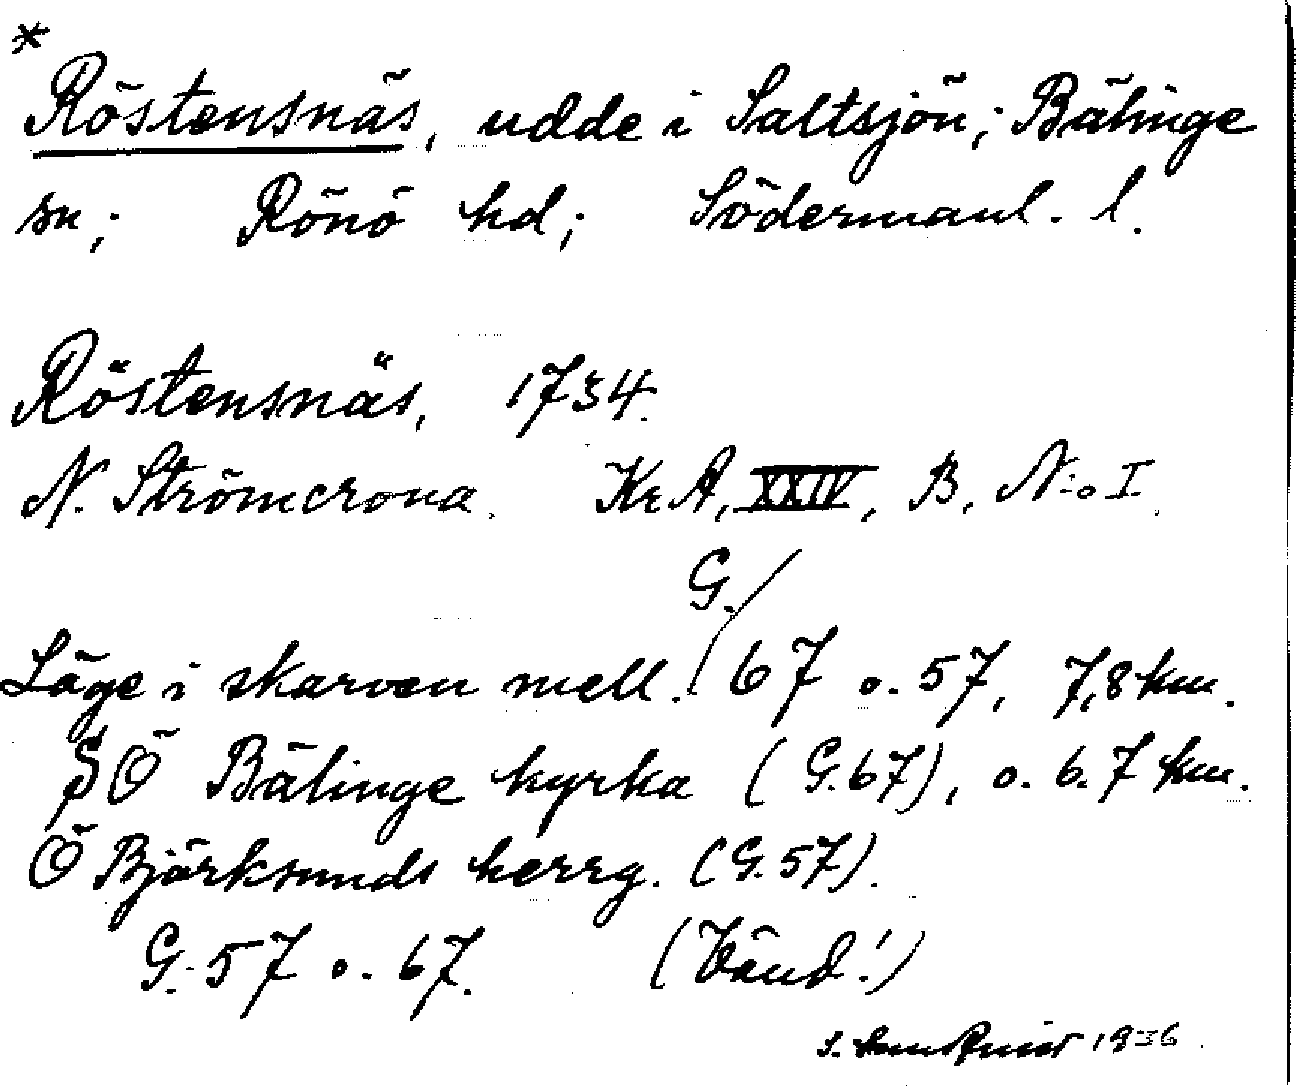 *
Röstensnäs, udde i Saltsjön; Bälinge
sn; Rönö hd; Södermanl. l.
Röstensnäs, 1734.
N. Strömcrona. Kr A, XXIV, B, N:o I.
G./
Läge i skarven mell. 67 o. 57, 7,8 km.
SÖ Bälinge kyrka (G.67), o. 6.7 km.
Ö Björksunds herrg. (G.57).
G. 57 o. 67. (Vänd!)
S. 1936.